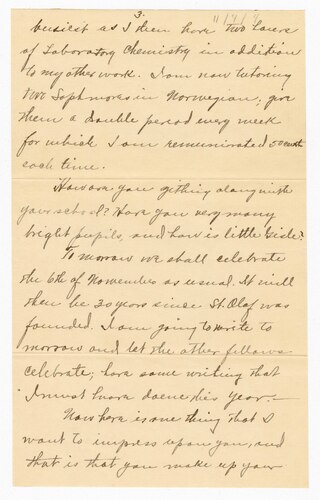 3.
busiest as I then have two hours
of Laboratory Chemistry in addition
to my other work. I am now tutoring
two Sophmores in Norwegian; give
them a double period every week
for which I am remunirated 50 cents
each time.
How are you getting along with
your school? Have you very many
bright pupils, and how is little Gisle?
To morrow we shall celebrate
the 6th of November as usual. It will
then be 30 years since St. Olaf was
founded. I am going to write to
morrow and let the other fellows
celebrate; have some writing that
I must have done this year.—
Now here is one thing that I
want to impress upon you, and
that is that you make up your